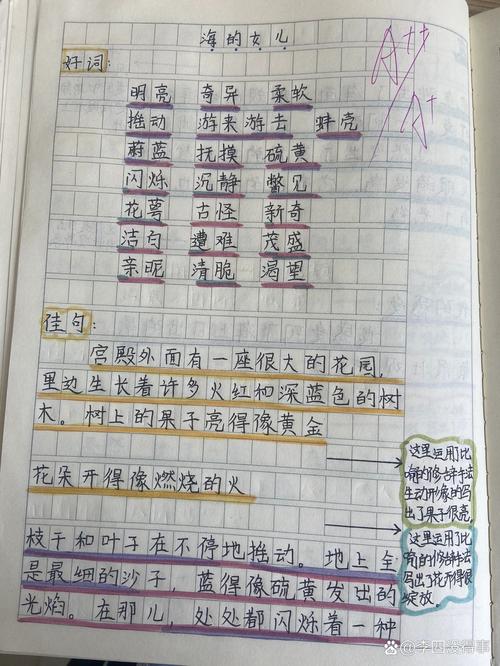 海的女儿
A++
A+
好词:
明亮 奇异 柔软
推动 游来游去 蚌壳
蔚蓝 抚摸 硫黄
闪烁 沉静 瞥见
花萼 古怪 新奇
洁白 遭难 茂盛
亲昵 清脆 渴望
佳句:
宫殿外面有一座很大的花园,
里边生长着许多火红和深蓝色的树
木。树上的果子亮得像黄金
花朵开得像燃烧的火
枝干和叶子在不停地推动。地上全
是最细的沙子,蓝得像硫黄发出的
光焰。在那儿,处处都闪烁着一种
这里运用了比
喻的修辞手法
生动形象的写
出了果子很亮。
这里运用了比
喻的修辞手法
写出了花开得很
绽放。
Bai度百科@李四没得事